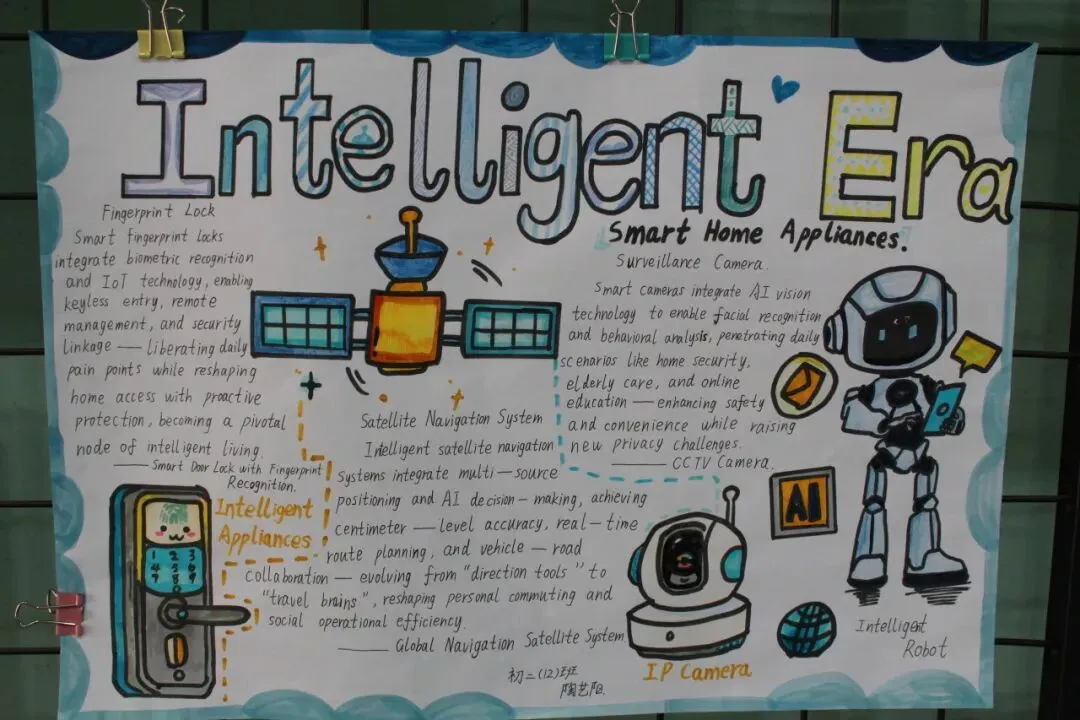 Intelligent Era
Fingerprint Lock
Smart fingerprint locks
integrate biometric recognition
and IoT technology, enabling
keyless entry, remote
management, and security
linkage — liberating daily
pain points while reshaping
home access with proactive
protection, becoming a pivotal
node of intelligent living.
— Smart Door Lock with Fingerprint
Recognition.
Intelligent
Appliances
1 2 3
4 5 6
7 8 9
Satellite Navigation System
Intelligent satellite navigation
Systems integrate multi—source
positioning and AI decision—making, achieving
centimeter —level accuracy, real—time
route planning, and vehicle—road
Collaboration — evolving from "direction tools" to
"travel brains", reshaping personal commuting and
social operational efficiency.
— Global Navigation Satellite System
初二(12)班
陶艺阳.
Smart Home Appliances.
Surveillance Camera.
Smart cameras integrate AI vision
technology to enable facial recognition
and behavioral analysis, penetrating daily
scenarios like home security,
elderly care, and online
education — enhancing safety
and convenience while raising
new privacy challenges.
— CCTV Camera.
AI
IP Camera
Intelligent
Robot